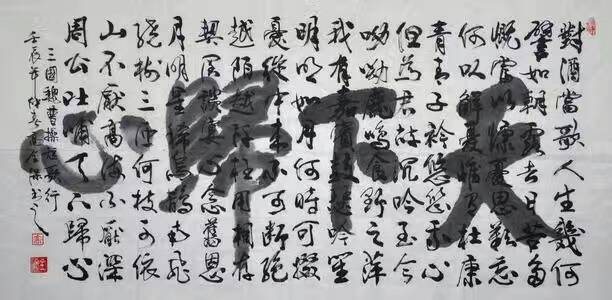 天下歸心
對酒當歌人生幾何
譬如朝露去日苦多
慨當以慷憂思難忘
何以解憂惟有杜康
青青子衿悠悠我心
但為君故沉吟至今
呦呦鹿鳴食野之萍
我有嘉賓鼓瑟吹笙
明明如月何時可掇
憂從中來不可斷絕
越陌越阡枉用相存
契闊談宴心念舊恩
月明星稀烏鵲南飛
繞樹三匝何枝可依
山不厭高海不厭深
周公吐哺天下歸心
三國魏曹操短歌行
壬辰年仲春書之